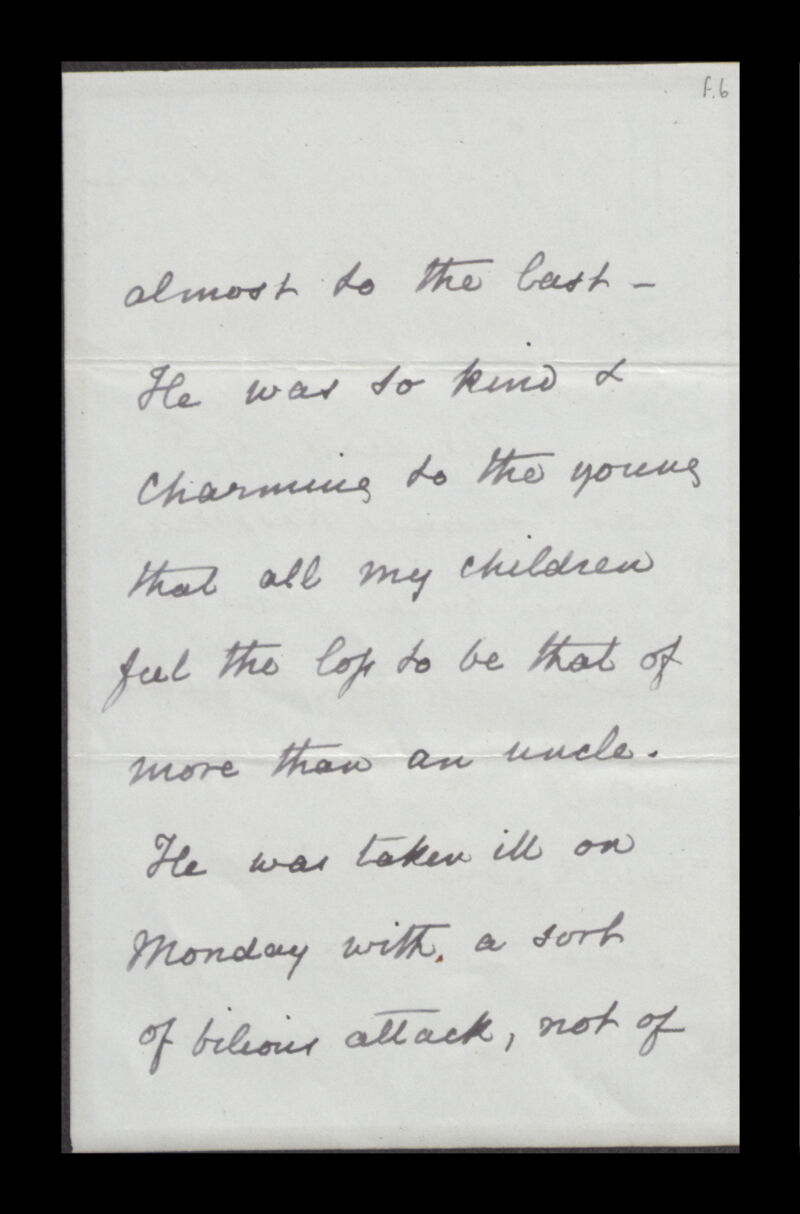 f.6
almost to the last –
He was so kind &
charming to the young
that all my children
feel the loss to be that of
more than an uncle.
He was taken ill on
Monday with. a sort
of bilious attack, not of